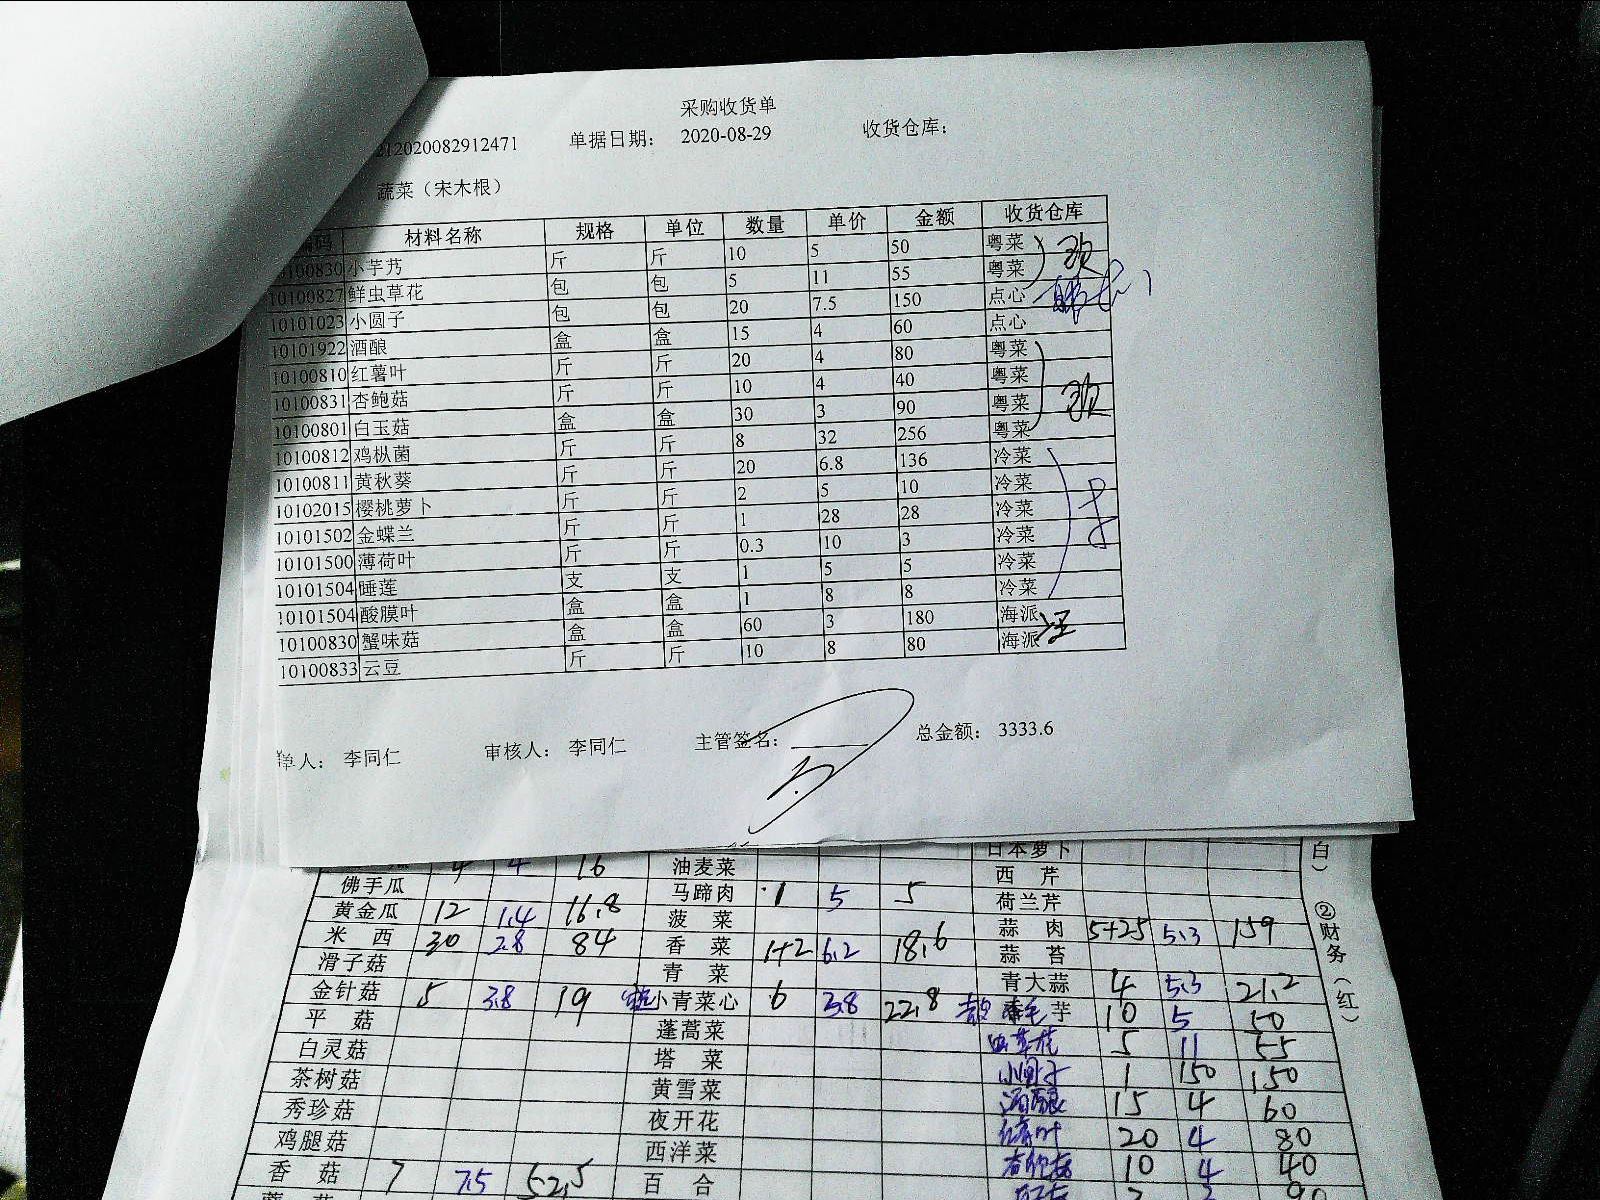 采购收货单
212020082912471 单据日期： 2020-08-29 收货仓库：
蔬菜（宋木根）
编码 材料名称 规格 单位 数量 单价 金额 收货仓库
10100830 小芋艿 斤 斤 10 5 50 粤菜
10100827 鲜虫草花 包 包 5 11 55 粤菜
10101023 小圆子 包 包 20 7.5 150 点心
10101922 酒酿 盒 盒 15 4 60 点心
10100810 红薯叶 斤 斤 20 4 80 粤菜
10100831 杏鲍菇 斤 斤 10 4 40 粤菜
10100801 白玉菇 盒 盒 30 3 90 粤菜
10100812 鸡枞菌 斤 斤 8 32 256 粤菜
10100811 黄秋葵 斤 斤 20 6.8 136 冷菜
10102015 樱桃萝卜 斤 斤 2 5 10 冷菜
10101502 金蝶兰 斤 斤 1 28 28 冷菜
10101500 薄荷叶 斤 斤 0.3 10 3 冷菜
10101504 睡莲 支 支 1 5 5 冷菜
10101504 酸膜叶 盒 盒 1 8 8 冷菜
10100830 蟹味菇 盒 盒 60 3 180 海派
10100833 云豆 斤 斤 10 8 80 海派
单人： 李同仁 审核人： 李同仁 主管签名： 总金额： 3333.6
4 16 油麦菜 日本萝卜
佛手瓜 马蹄肉 1 5 5 西芹
黄金瓜 12 1.4 16.8 菠菜 荷兰芹
米西 30 2.8 84 香菜 1+2 6.2 18.6 蒜肉 5+25 5.3 159
滑子菇 青菜 蒜苔
金针菇 5 3.8 19 小青菜心 6 3.8 22.8 青大蒜 4 5.3 21.2
平菇 蓬蒿菜 芋 10 5 50
白灵菇 塔菜 虫草花 5 11 55
茶树菇 黄雪菜 小圆子 1 150 150
秀珍菇 夜开花 酒酿 15 4 60
鸡腿菇 西洋菜 20 4 80
香菇 7 7.5 52.5 百合 杏鲍菇 10 4 40
白）
②财务（红）